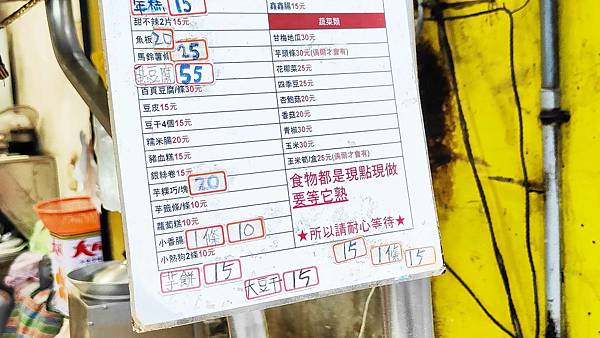 年糕 15
甜不辣2片15元
魚板20
馬鈴薯條25
臭豆腐55
百頁豆腐/條30元
豆皮15元
豆干4個15元
糯米腸20元
豬血糕15元
銀絲卷15元
芋粿巧/塊20
芋籤條/條10元
蘿蔔糕10元
小香腸1條10
小熱狗2條10元
芋餅15
大豆干15
鑫鑫腸15元
蔬菜類
甘梅地瓜30元
芋頭條30元(偶爾才會有)
花椰菜25元
四季豆25元
杏鮑菇20元
香菇20元
青椒30元
玉米30元
玉米筍/盒25元(偶爾才會有)
食物都是現點現做
要等它熟
★所以請耐心等待★
15
1條15